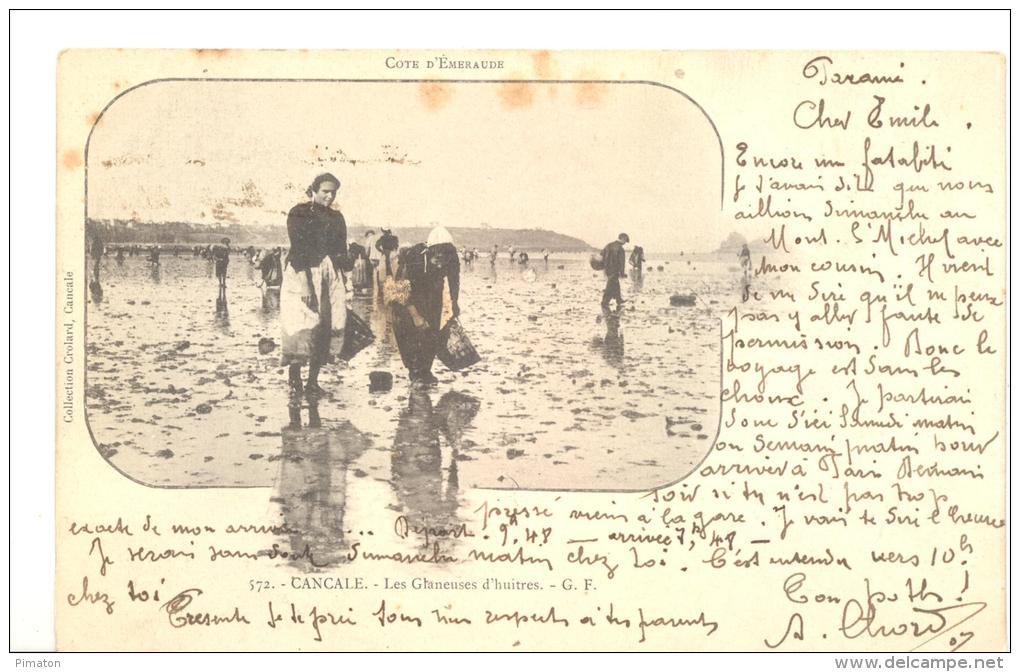 COTE D'ÉMERAUDE
Paramé.
Cher Emile,
Encore une fatalité
Je t'avais dit que nous
allions dimanche au
Mont St Michel avec
mon cousin. Il vient
de me dire qu'il ne peut
pas y aller faute de
permission. Donc le
voyage est dans les
choux. Je partirai
donc d'ici Samedi matin
ou matin pour
arriver à Paris
soir si tu n'est pas trop
pressé viens à la gare. Je vais te dire l'heure
exacte de mon arrivée ... Départ. 9h,48 - arrivée 7h,48 -
Je serais sans doute dimanche matin chez toi. C'est entendu vers 10h
chez toi
572. - CANCALE. - Les Glaneuses d'huîtres. - G. F.
Ton pote!
Présente je te prie tous mes respects à tes parents
A.
07
Collection Crolard, Cancale
Pimaton
www.delcampe.net